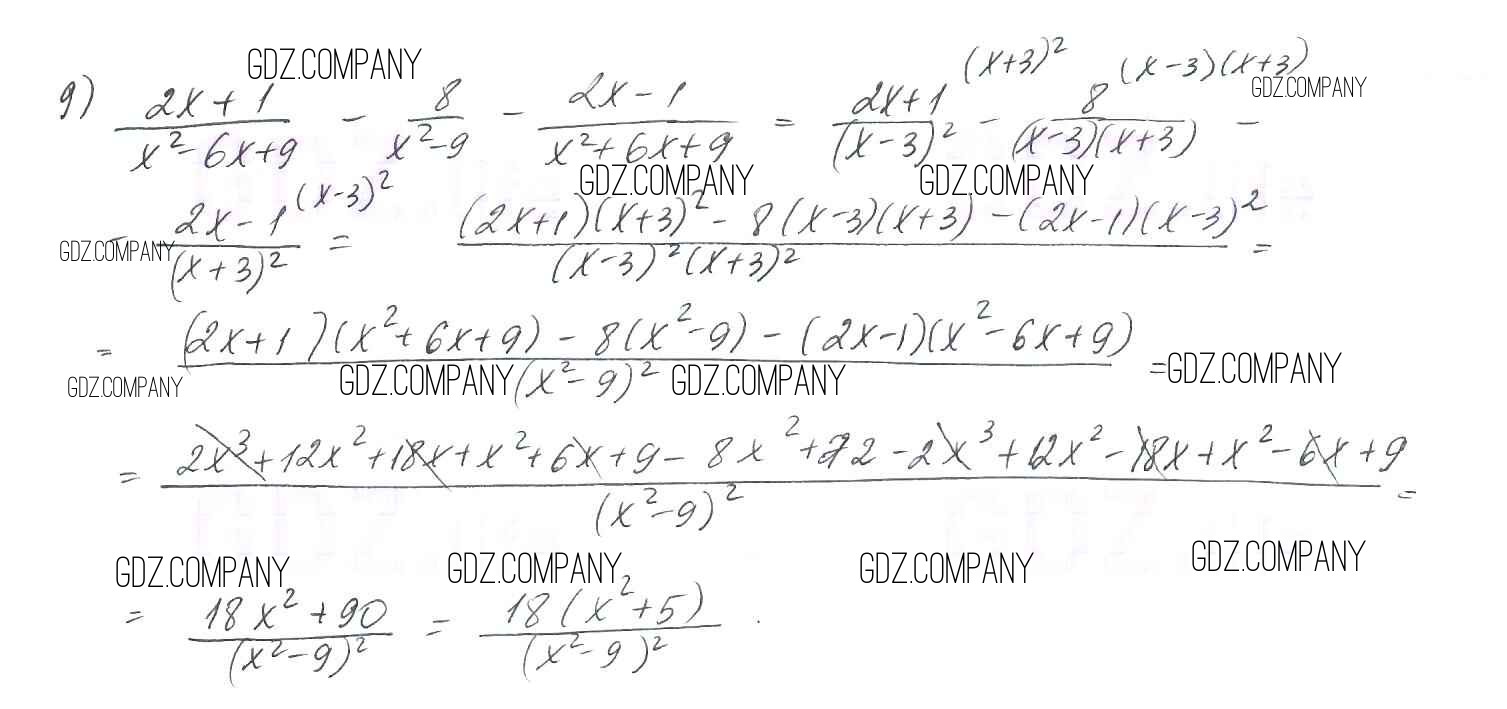 GDZ.COMPANY
9) (2x+1)/(x²-6x+9) - 8/(x²-9) - (2x-1)/(x²+6x+9) = (2x+1)/(x-3)² ^(x+3)² - 8/((x-3)(x+3)) ^(x-3)(x+3) -
GDZ.COMPANY
GDZ.COMPANY GDZ.COMPANY
- (2x-1)/(x+3)² ^(x-3)² = ((2x+1)(x+3)² - 8(x-3)(x+3) - (2x-1)(x-3)²)/((x-3)²(x+3)²) =
GDZ.COMPANY
= ((2x+1)(x²+6x+9) - 8(x²-9) - (2x-1)(x²-6x+9))/(x²-9)² =
GDZ.COMPANY GDZ.COMPANY GDZ.COMPANY GDZ.COMPANY
= (2x³+12x²+18x+x²+6x+9-8x²+72-2x³+12x²-18x+x²-6x+9)/(x²-9)² =
GDZ.COMPANY GDZ.COMPANY GDZ.COMPANY GDZ.COMPANY
= (18x²+90)/(x²-9)² = 18(x²+5)/(x²-9)² .